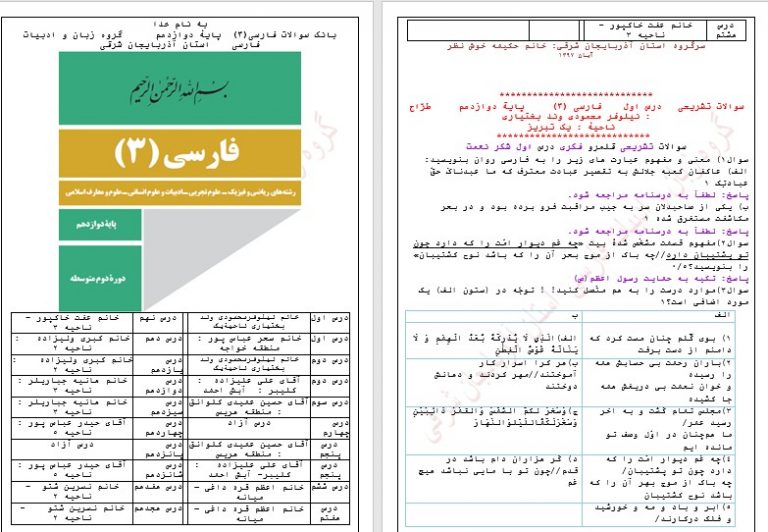 به نام خدا
بانک سوالات فارسی(۳) پایه دوازدهم گروه زبان و ادبیات
فارسی استان آذربایجان شرقی
بسم الله الرحمن الرحیم
فارسی (۳)
رشته‌های ریاضی و فیزیک ـ علوم تجربی ـ ادبیات و علوم انسانی ـ علوم و معارف اسلامی
پایهٔ دوازدهم
دورهٔ دوم متوسطه
درس اول خانم نیلوفرمحمودی وند بختیاری ناحیهٔ یک درس نهم خانم عفت خاکپور - ناحیه ۳
درس اول خانم سحر عباس پور : منطقه خواجه درس دهم خانم کبری ولیزاده : ناحیه ۲
درس دوم خانم نیلوفرمحمودی وند بختیاری ناحیهٔ یک درس یازدهم خانم کبری ولیزاده : ناحیه ۲
درس دوم آقای علی علیزاده : کلیبر : آبش احمد درس دوازدهم خانم هانیه جباریلر : ناحیه ۳
درس سوم آقای حسین عمیدی کلوانق : منطقه هریس درس سیزدهم خانم هانیه جباریلر : ناحیه ۳
درس چهارم درس آزاد درس چهاردهم آقای حیدر عباس پور : ناحیه ۵
درس پنجم آقای حسین عمیدی کلوانق : منطقه هریس درس پانزدهم درس آزاد
درس پنجم آقای علی علیزاده : کلیبر- آبش احمد درس شانزدهم آقای حیدر عباس پور : ناحیه ۵
درس ششم خانم اعظم قره داغی - میانه درس هفدهم خانم نسرین شتو - ناحیه ۲
درس هفتم خانم اعظم قره داغی - میانه درس هجدهم خانم نسرین شتو - ناحیه ۲
درس هشتم خانم عفت خاکپور - ناحیه ۳
سرگروه استان آذربایجان شرقی: خانم حکیمه خوش نظر
آبان ۱۳۹۷
****************************
سوالات تشریحی درس اول فارسی (۳) پایهٔ دوازدهم طرّاح
: نیلوفر محمودی وند بختیاری
ناحیهٔ : یک تبریز
****************************
سوالات تشریحی قلمرو فکری درس اول شکر نعمت
سوال۱) معنی و مفهوم عبارت های زیر را به فارسی روان بنویسید:
الف) عاکفان کعبه جلالش به تقصیر عبادت معترف که ما عبدناک حقّ
عبادتک ۱
پاسخ: لطفاً به درسنامه مراجعه شود.
ب) یکی از صاحبدلان سر به جیب مراقبت فرو برده بود و در بحر
مکاشفت مستغرق شده ۱
پاسخ: لطفاً به درسنامه مراجعه شود.
سوال۲)مفهوم قسمت مشخّص شدهٔ بیت «چه غم دیوار امّت را که دارد چون
تو پشتیبان دارد//چه باک از موج بحر آن را که باشد نوح کشتیبان»
را بنویسید؟۰/۵
پاسخ: تکیه به حمایت رسول اعظم(ص)
سوال۳)موارد درست را به هم متّصل کنید! ! توجّه در (ستون الف) یک
مورد اضافی است؟۱
الف ب
۱) بوی گلم چنان مست کرد که
دامنم از دست برفت
الف)الَّذِی لَا یُدْرِکُهُ بُعْدُ الْهِمَمِ وَ لَا
یَنَالُهُ غَوْصُ الْفِطَنِ
۲)باران رحمت بی حسابش همه
را رسیده
و خوان نعمت بی دریغش همه
جا کشیده
ب)هر کرا اسرار کار
آموختند//مهر کردند و دهانش
دوختند
۳)مجلس تمام گشت و به آخر
رسید عمر/
ما همچنان در اوّل وصف تو
مانده ایم
ج)وَسَخَّرَ لَکُمُ الشَّمْسَ وَالْقَمَرَ دَائِبَیْنِ
وَسَخَّرَلَکُمُاللَّیْلَوَالنَّهَارَ
۴)چه غم دیوار امّت را که
دارد چون تو پشتیبان/
چه باک از موج بهر آن را که
باشد نوح کشتیبان
د) گر هزاران دام باشد در
قدم//چون تو با مایی نباشد هیچ
غم
۵)ابر و باد و مه و خورشید
و فلک درکارند/